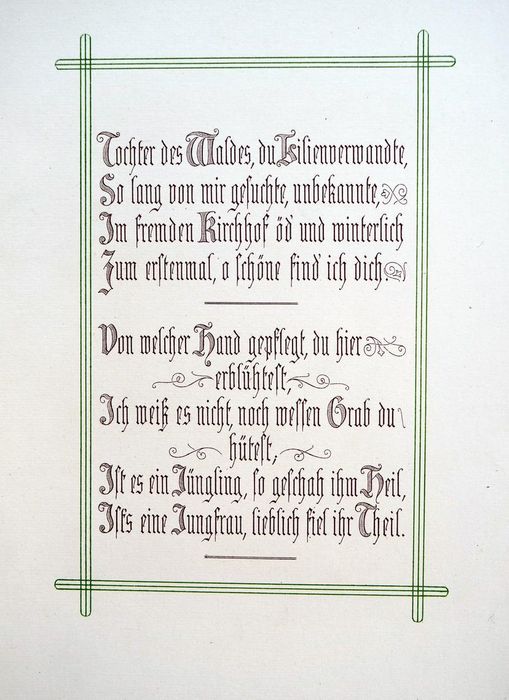 Tochter des Waldes, du Lilienverwandte,
So lang von mir gesuchte, unbekannte,
Im fremden Kirchhof öd' und winterlich
Zum erstenmal, o schöne find' ich dich.
Von welcher Hand gepflegt, du hier
erblühtest,
Ich weiß es nicht, noch wessen Grab du
hütest,
Ist es ein Jüngling, so geschah ihm Heil,
Ist's eine Jungfrau, lieblich fiel ihr Theil.